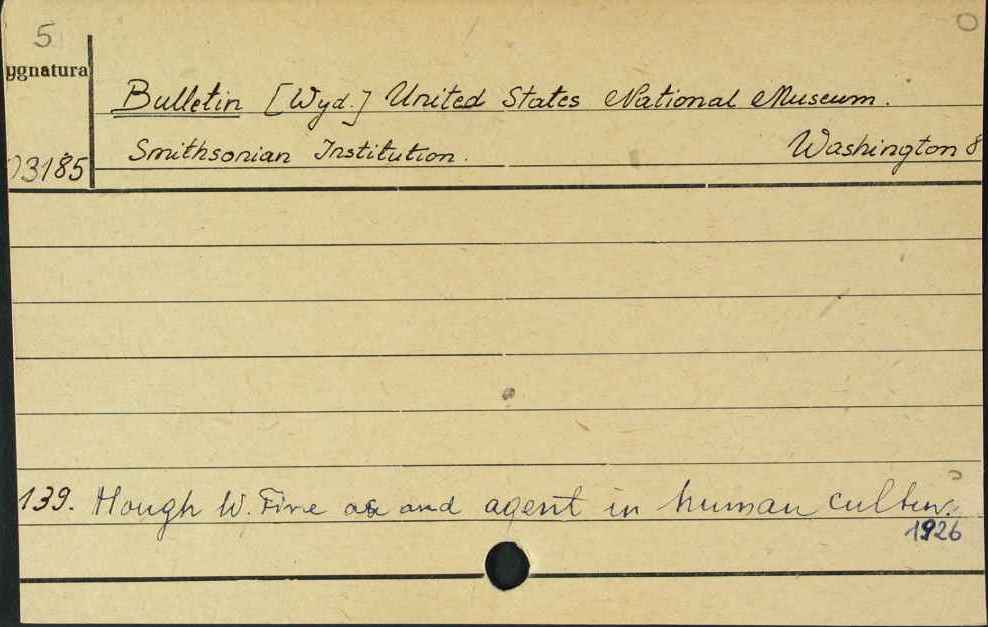 5
ygnatura
Bulletin [Wyd.] United States National Museum.
Smithsonian Institution. Washington 8
03185
139. Hough W. Fire as and agent in human cultur.
1926